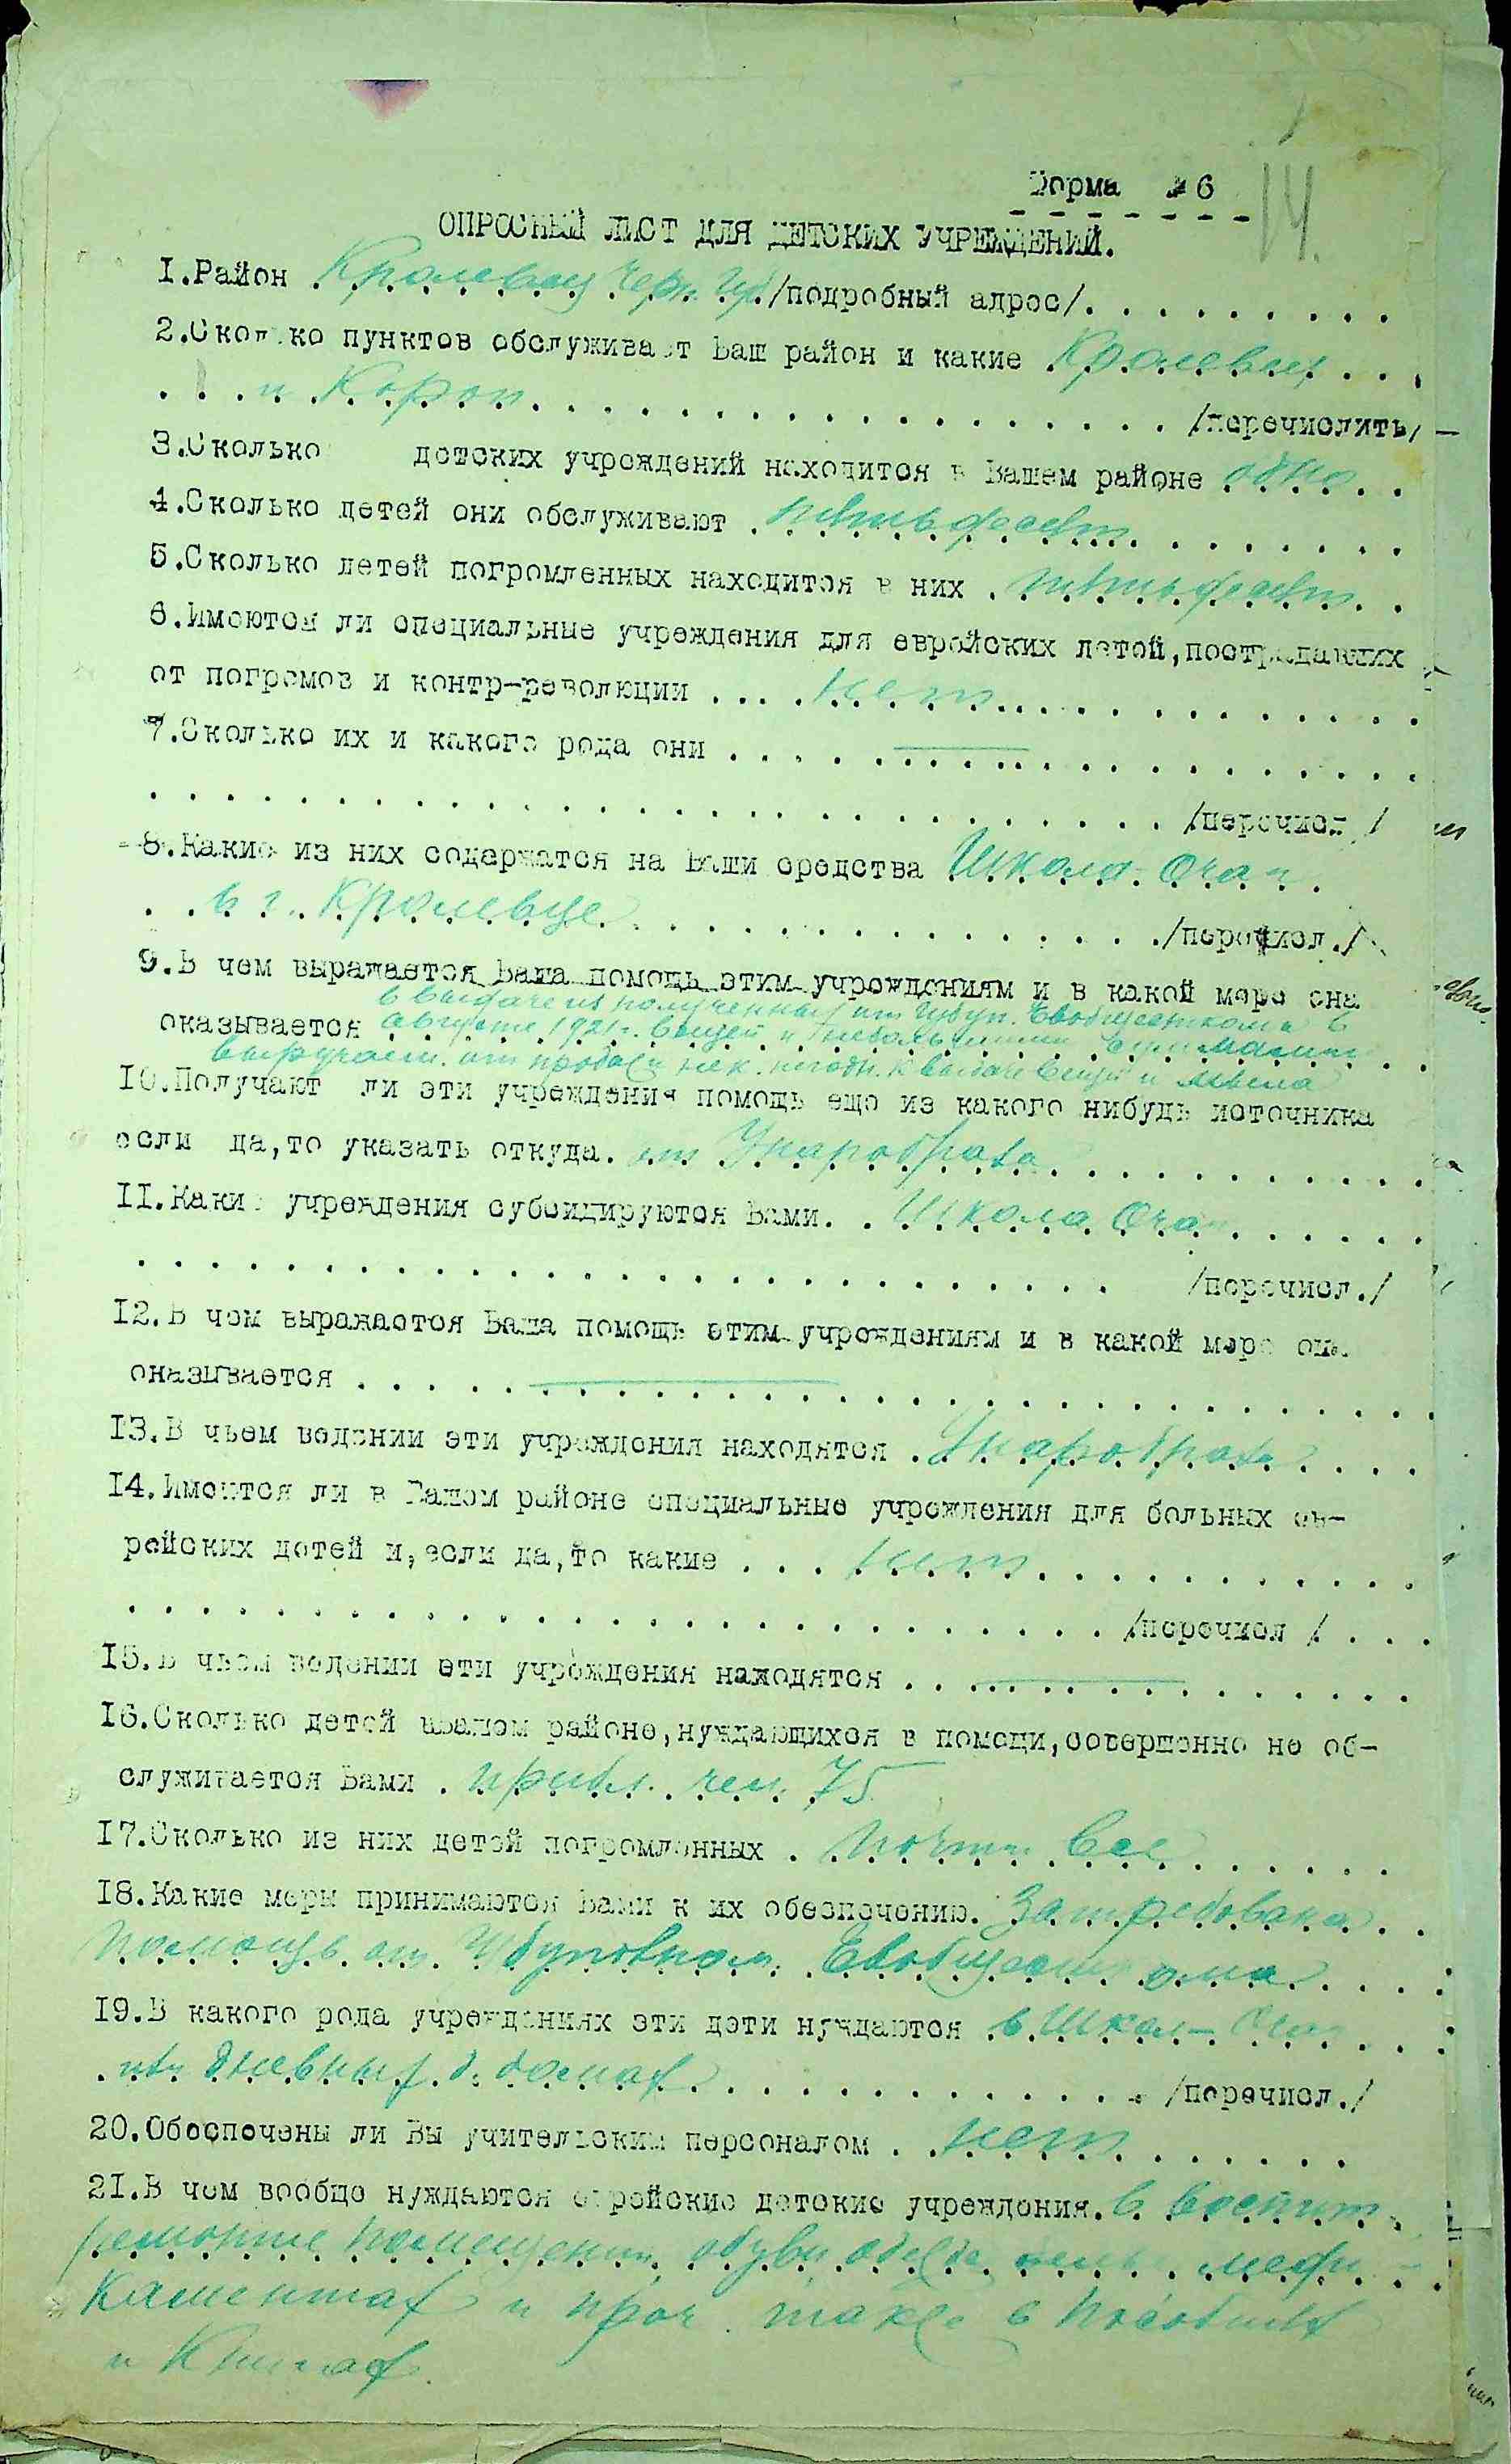 Форма № 6
14.
ОПРОСНЫЙ ЛИСТ ДЛЯ ДЕТСКИХ УЧРЕЖДЕНИЙ.
1.Район Кролевец Черн. губ /подробный адрес/. . . . . . . . .
2.Сколько пунктов обслуживает Ваш район и какие Кролевец . . .
. . . и Короп . . . . . . . . . . . . . . . . . /перечислить/
3.Сколько детских учреждений находится в Вашем районе одно . .
4.Сколько детей они обслуживают . пятьдесят . . . . . . .
5.Сколько детей погромленных находится в них . пятьдесят . .
6.Имеются ли специальные учреждения для еврейских детей,пострадавших
от погромов и контр-революции . . . . нет . . . . . . . . . . .
7.Сколько их и какого рода они . . . . . . . . . . . . . . . . . .
. . . . . . . . . . . . . . . . . . . . . . . . . . . /перечисл /
8.Какие из них содержатся на Ваши средства Школа-Очаг .
. . в г. Кролевце . . . . . . . . . . . . . . . /перечисл./
9.В чем выражается Ваша помощь этим учреждениям и в какой мере она
в выдаче из полученных от Губуп. Евобщесткома в
оказывается августе 1921г. вещей и небольшими
выручает. от продажи нек. негодн. к выдаче вещей и мыла
10.Получают ли эти учреждения помощь еще из какого нибудь источника
если да,то указать откуда. от Унаробраза . . . . . . . . . .
11.Какие учреждения субсидируются Вами. . Школа Очаг . . . . . .
. . . . . . . . . . . . . . . . . . . . . . . . . . /перечисл./
12.В чем выражается Ваша помощь этим учреждениям и в какой мере она
оказывается . . . . . . . . . . . . . . . . . . . . . . . . .
13.В чьем ведении эти учреждения находятся . Унаробраза . . . .
14.Имеются ли в Вашем районе специальные учреждения для больных ев-
рейских детей и,если да,то какие . . . нет . . . . . . . . . . .
. . . . . . . . . . . . . . . . . . . . . . . . . /перечисл / . . .
15.В чьем ведении эти учреждения находятся . . . . . . . . . . . . .
16.Сколько детей вВашем районе,нуждающихся в помощи,совершенно не об-
служивается Вами . прибл. чел. 75
17.Сколько из них детей погромленных . почти все . . . . . .
18.Какие меры принимаются Вами к их обеспечению. Затребована . .
помощь от Евобщесткома . . . .
19.В какого рода учреждениях эти дети нуждаются в Школ-Очаг . . . .
. дневных д. домах . . . . . . . . . . . . . /перечисл./
20.Обеспечены ли Вы учительским персоналом . . нет . . . . . . .
21.В чем вообще нуждаются еврейские детские учреждения. в
ремонте помещения, обуви, одежде, меди-
каментах и проч. также в пособиях
и Книгах.